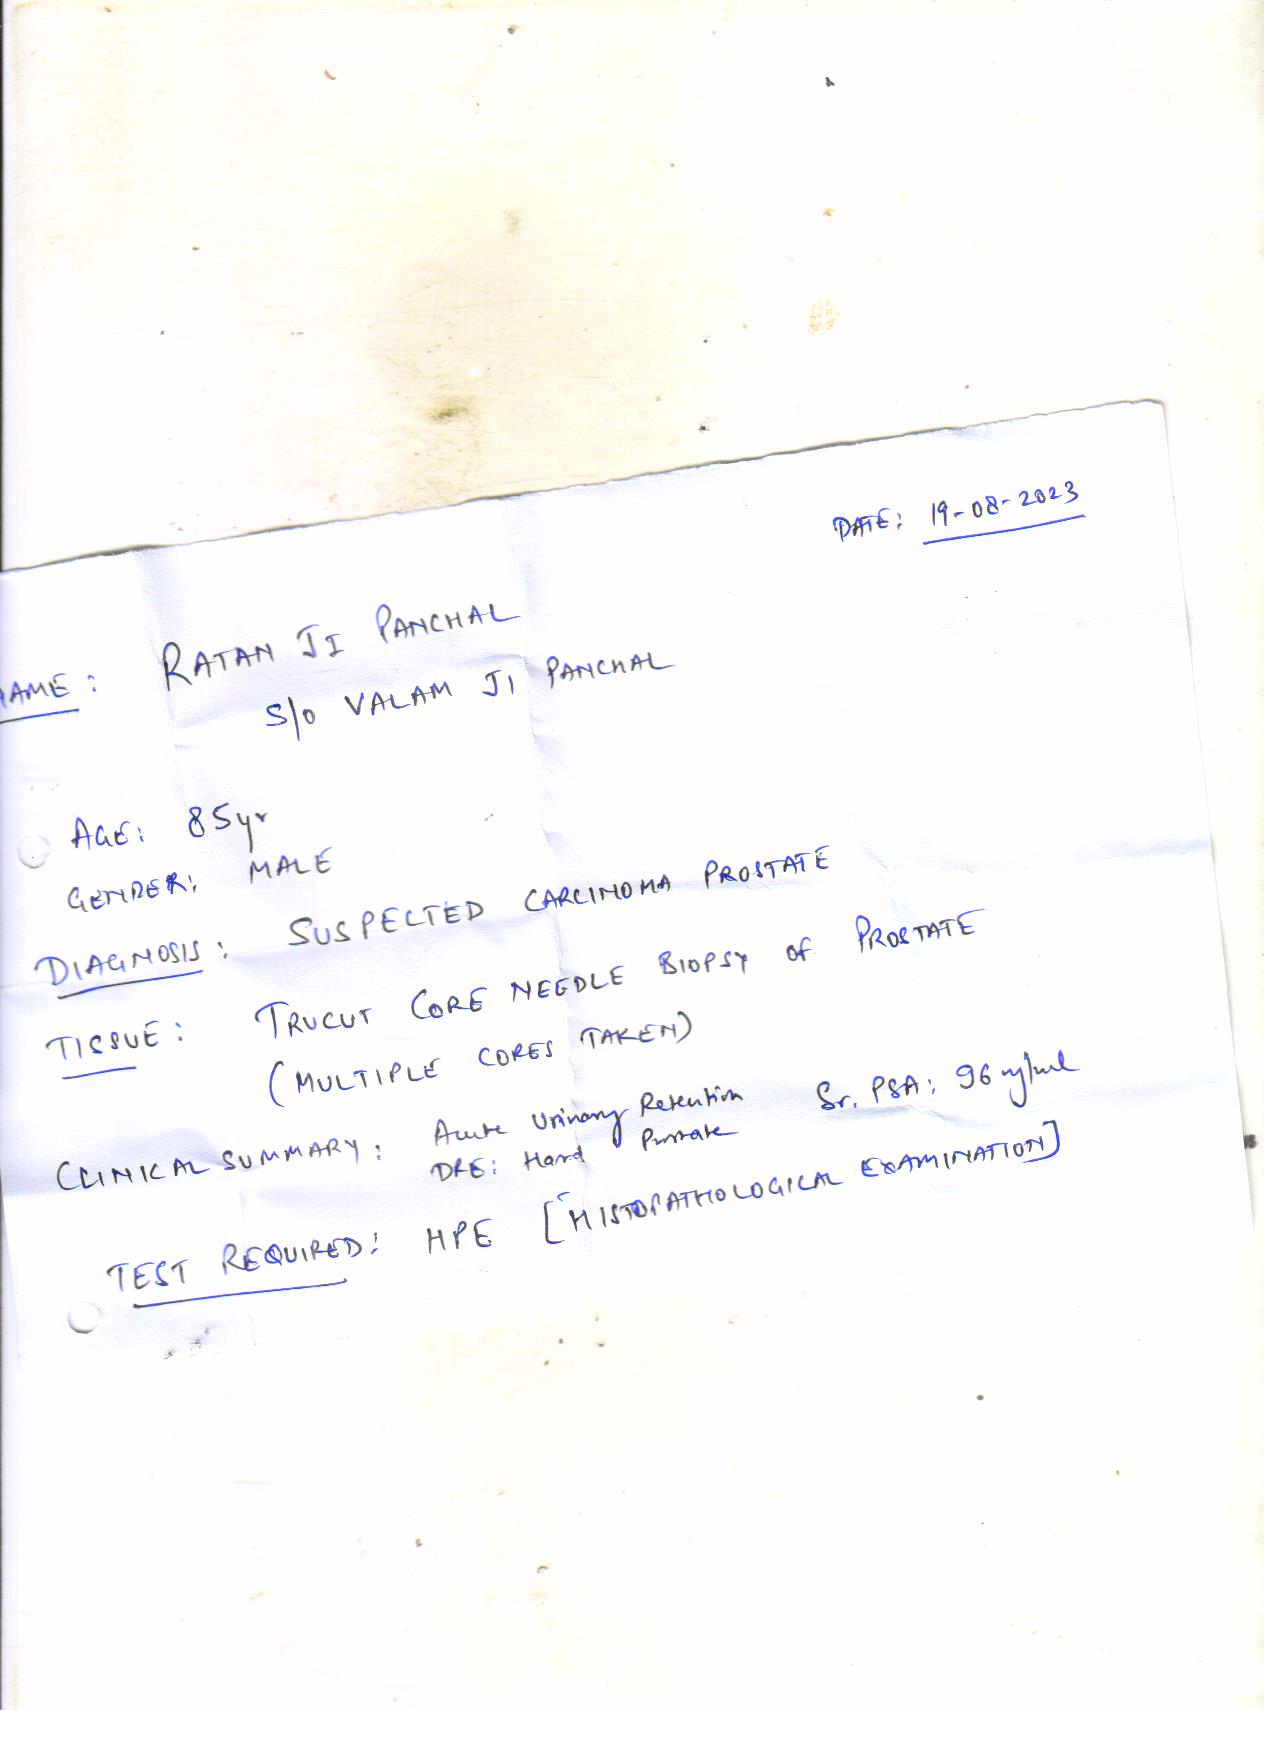 DATE: 19-08-2023
NAME: RATAN JI PANCHAL
S/O VALAM JI PANCHAL
AGE: 85yr
GENDER: MALE
DIAGNOSIS: SUSPECTED CARCINOMA PROSTATE
TISSUE: TRUCUT CORE NEEDLE BIOPSY of PROSTATE
(MULTIPLE CORES TAKEN)
CLINICAL SUMMARY: Acute Urinary Retention Sr. PSA: 96 ng/ml
DRE: Hard Prostate
TEST REQUIRED: HPE [HISTOPATHOLOGICAL EXAMINATION]